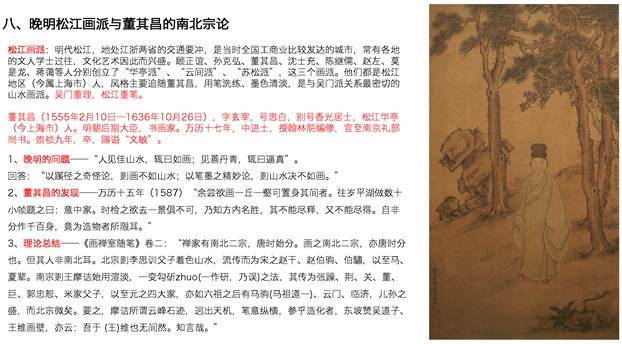 八、晚明松江画派与董其昌的南北宗论
松江画派：明代松江，地处江浙两省的交通要冲，是当时全国工商业比较发达的城市，常有各地
的文人学士过往，文化艺术因此而兴盛。顾正谊、孙克弘、董其昌、沈士充、陈继儒、赵左、莫
是龙、蒋蔼等人分别创立了“华亭派”、“云间派”、“苏松派”，这三个画派。他们都是松江
地区（今属上海市）人，风格主要追随董其昌，用笔洗练、墨色清淡，是与吴门派关系最密切的
山水画派。吴门重理，松江重笔。
董其昌（1555年2月10日—1636年10月26日），字玄宰，号思白，别号香光居士，松江华亭
（今上海市）人。明朝后期大臣，书画家。万历十七年，中进士，授翰林院编修，官至南京礼部
尚书。崇祯九年，卒，赐谥“文敏”。
1、晚明的问题——“人见佳山水，辄曰如画；见善丹青，辄曰逼真”。
回答：“以蹊径之奇怪论，则画不如山水；以笔墨之精妙论，则山水决不如画。”
2、董其昌的发现——万历十五年（1587）“余尝欲画一丘一壑可置身其间者。往岁平湖做数十
小帧题之曰：意中家。时检之欲去一景俱不可，乃知方内名胜，其不能尽释，又不能尽得。自非
分作千百身，竟为造物者所限耳。”
3、理论总结——《画禅室随笔》卷二：“禅家有南北二宗，唐时始分。画之南北二宗，亦唐时分
也。但其人非南北耳。北宗则李思训父子着色山水，流传而为宋之赵干、赵伯驹、伯骕，以至马、
夏辈。南宗则王摩诘始用渲淡，一变勾斫zhuo(一作研，乃误)之法，其传为张躁、荆、关、董、
巨、郭忠恕、米家父子，以至元之四大家，亦如六祖之后有马驹(马祖道一)、云门、临济，儿孙之
盛，而北宗微矣。要之，摩诘所谓云峰石迹，迥出天机，笔意纵横，参乎造化者，东坡赞吴道子、
王维画壁，亦云：吾于 (王)维也无间然。知言哉。”